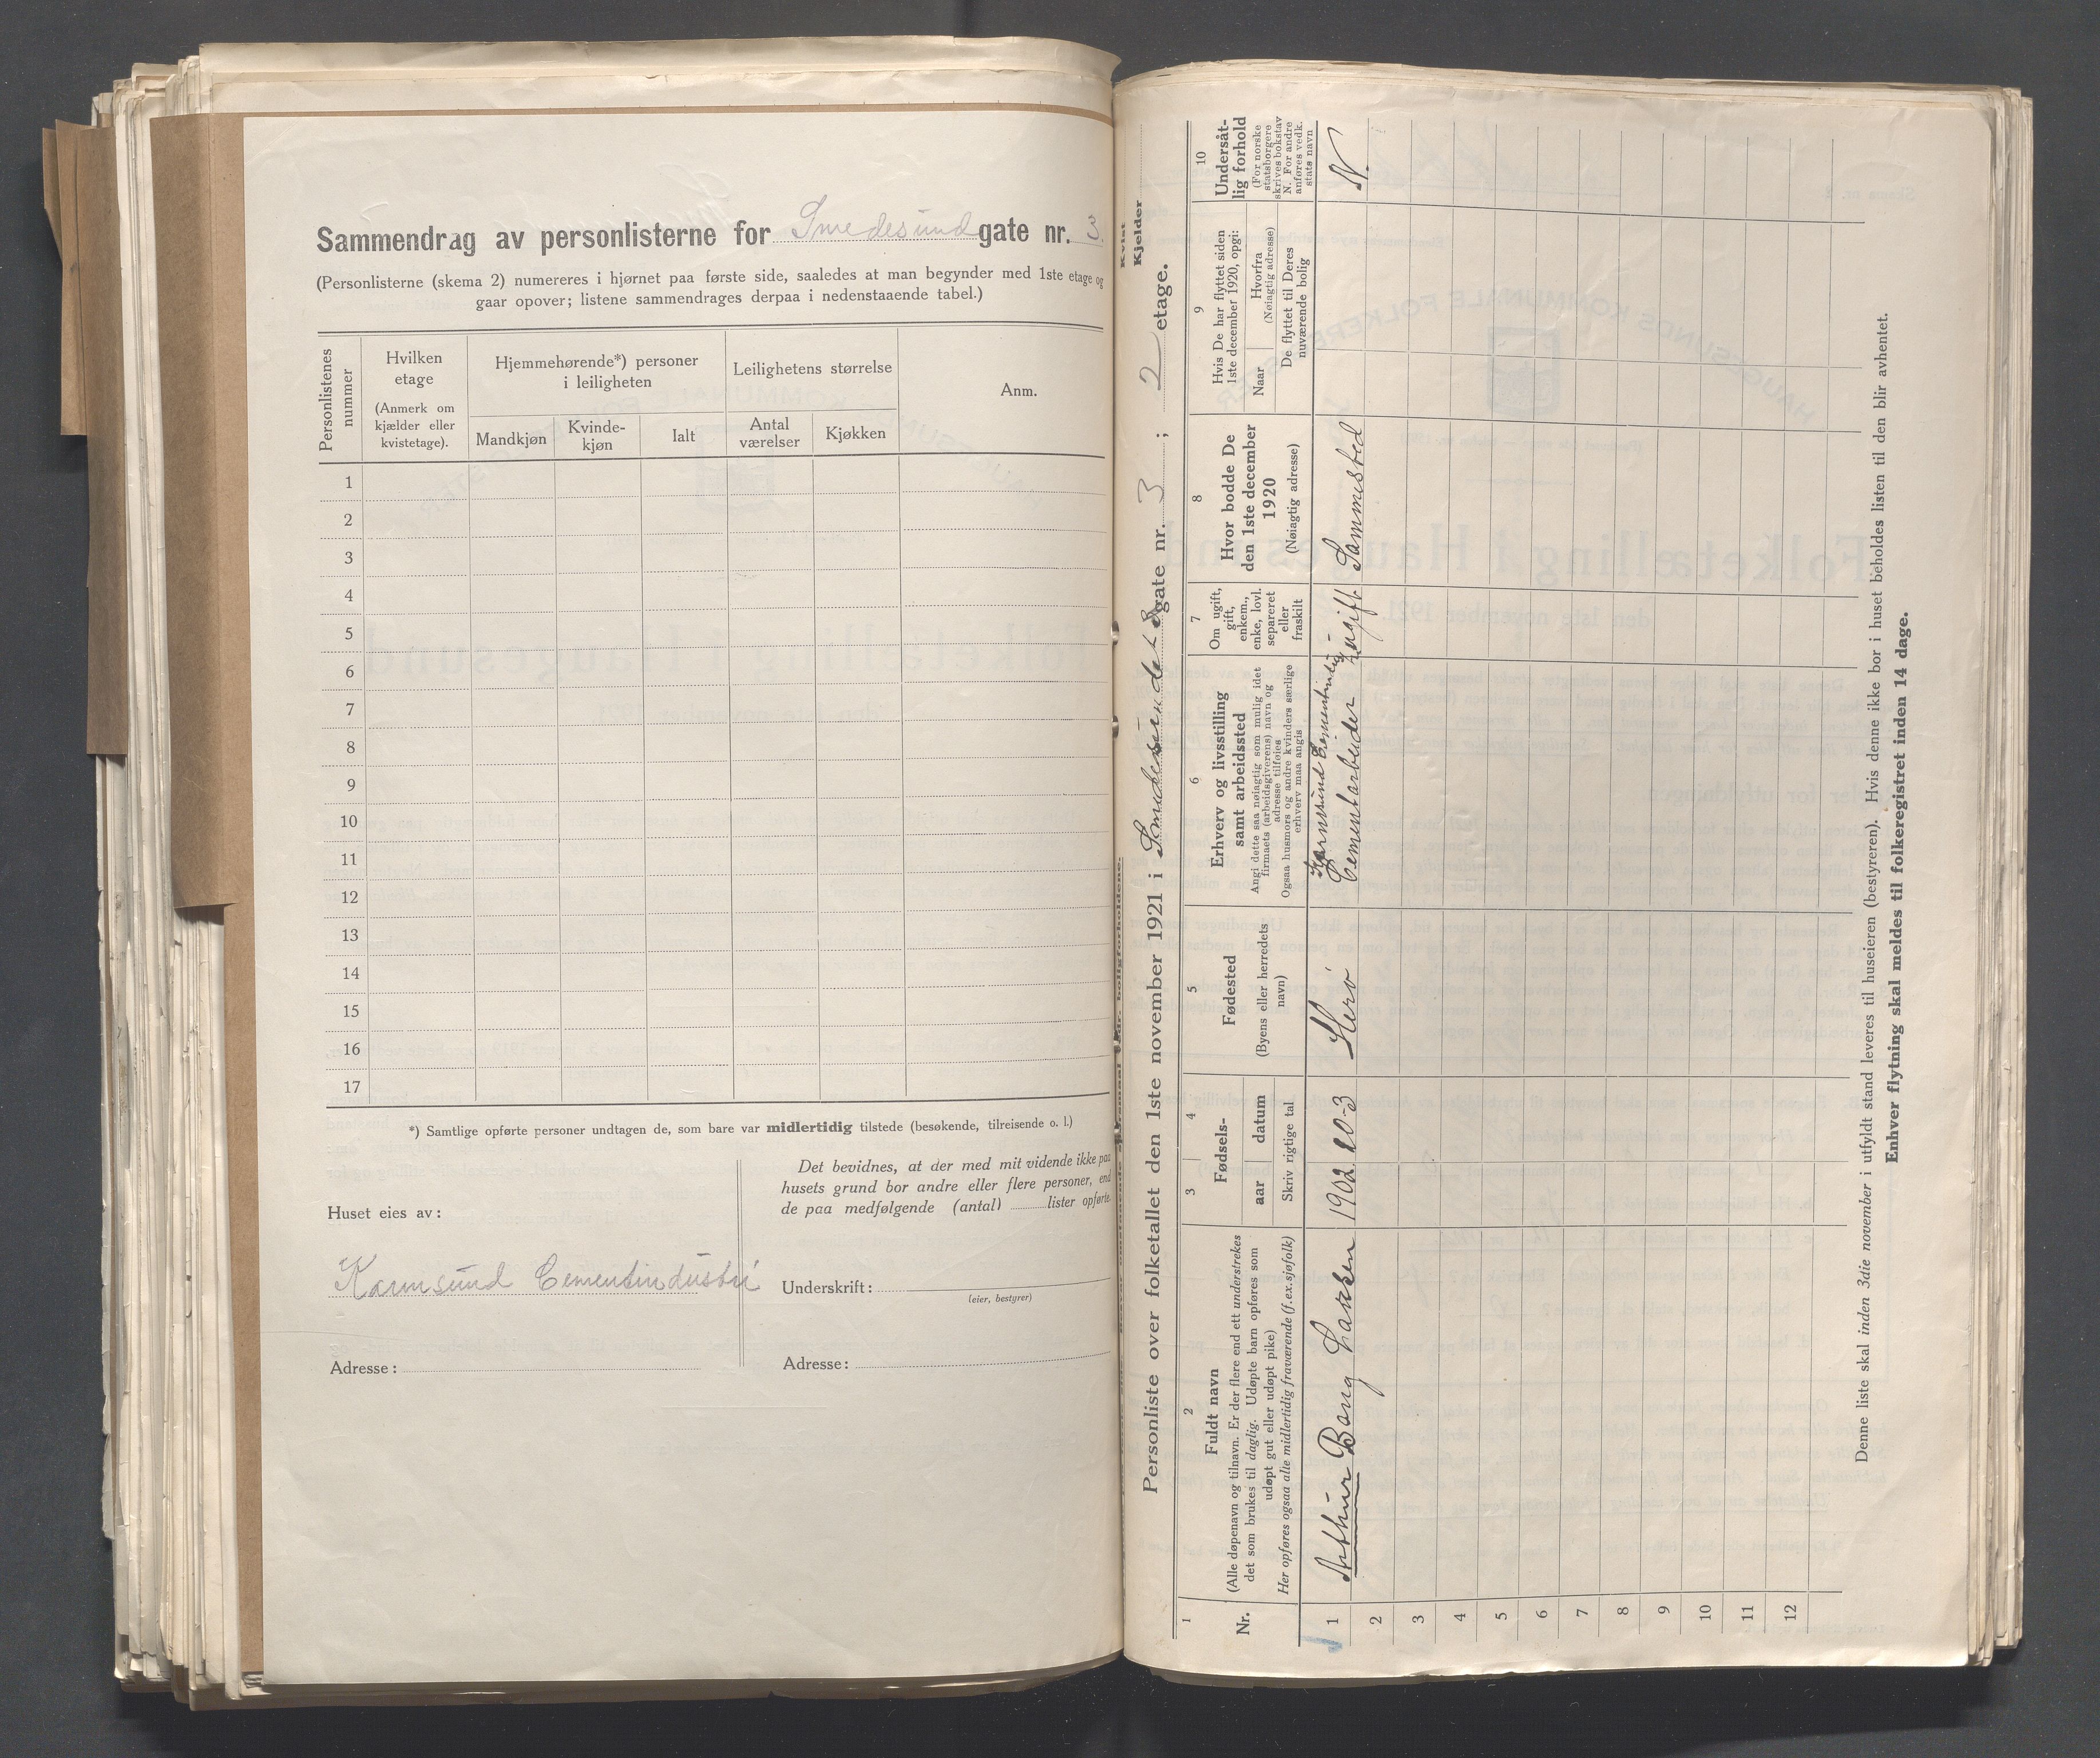 Sammendrag av personlisterne for Smedesund gate nr. 3.
(Personlisterne (skema 2) numereres i hjørnet paa første side, saaledes at man begynder med 1ste etage og
gaar opover; listene sammendrages derpaa i nedenstaaende tabel.)
Personlistenes nummer
Hvilken etage
(Anmerk om kjælder eller kvistetage).
Hjemmehørende*) personer i leiligheten
Mandkjøn
Kvindekjøn
Ialt
Leilighetens størrelse
Antal værelser
Kjøkken
Anm.
1
2
3
4
5
6
7
8
9
10
11
12
13
14
15
16
17
*) Samtlige opførte personer undtagen de, som bare var midlertidig tilstede (besøkende, tilreisende o. l.)
Huset eies av:
Karmsund Cementindustri
Adresse:
Det bevidnes, at der med mit vidende ikke paa
husets grund bor andre eller flere personer, end
de paa medfølgende (antal) lister opførte.
Underskrift:
(eier, bestyrer)
Adresse:
Personliste over folketallet den 1ste november 1921 i Smedesundet gate nr. 3; 2 etage.
Kvist
Kjelder
1
Nr.
2
Fuldt navn
(Alle døpenavn og tilnavn. Er der flere end ett understrekes
det som brukes til daglig. Udøpte barn opføres som
udøpt gut eller udøpt pike)
Her opføres ogsaa alle midlertidig fraværende (f.ex.sjøfolk)
3 4
Fødsels-
aar datum
Skriv rigtige tal
5
Fødested
(Byens eller herredets
navn)
6
Erhverv og livsstilling
samt arbeidssted
Angi dette saa nøiagtig som mulig idet
firmaets (arbeidsgiverens) navn og
adresse tilføies
Ogsaa husmors og andre kvinders særlige
erhverv maa angis
7
Om ugift,
gift,
enkem.,
enke, lovl.
separeret
eller
fraskilt
8
Hvor bodde De
den 1ste december
1920
(Nøiagtig adresse)
9
Hvis De har flyttet siden
1ste december 1920, opgi:
Naar
Hvorfra
(Nøiagtig adresse)
De flyttet til Deres
nuværende bolig
10
Undersåt-
lig forhold
(For norske
statsborgere
skrives bokstav
N. For andre
anføres vedk.
stats navn
1 Arthur Bang Larsen 1902 20-3 Karmsund Cementindustri Cementarbeider ugift Sammested N.
2
3
4
5
6
7
8
9
10
11
12
Denne liste skal inden 3die november i utfyldt stand leveres til huseieren (bestyreren). Hvis denne ikke bor i huset beholdes listen til den blir avhentet.
Enhver flytning skal meldes til folkeregistret inden 14 dage.